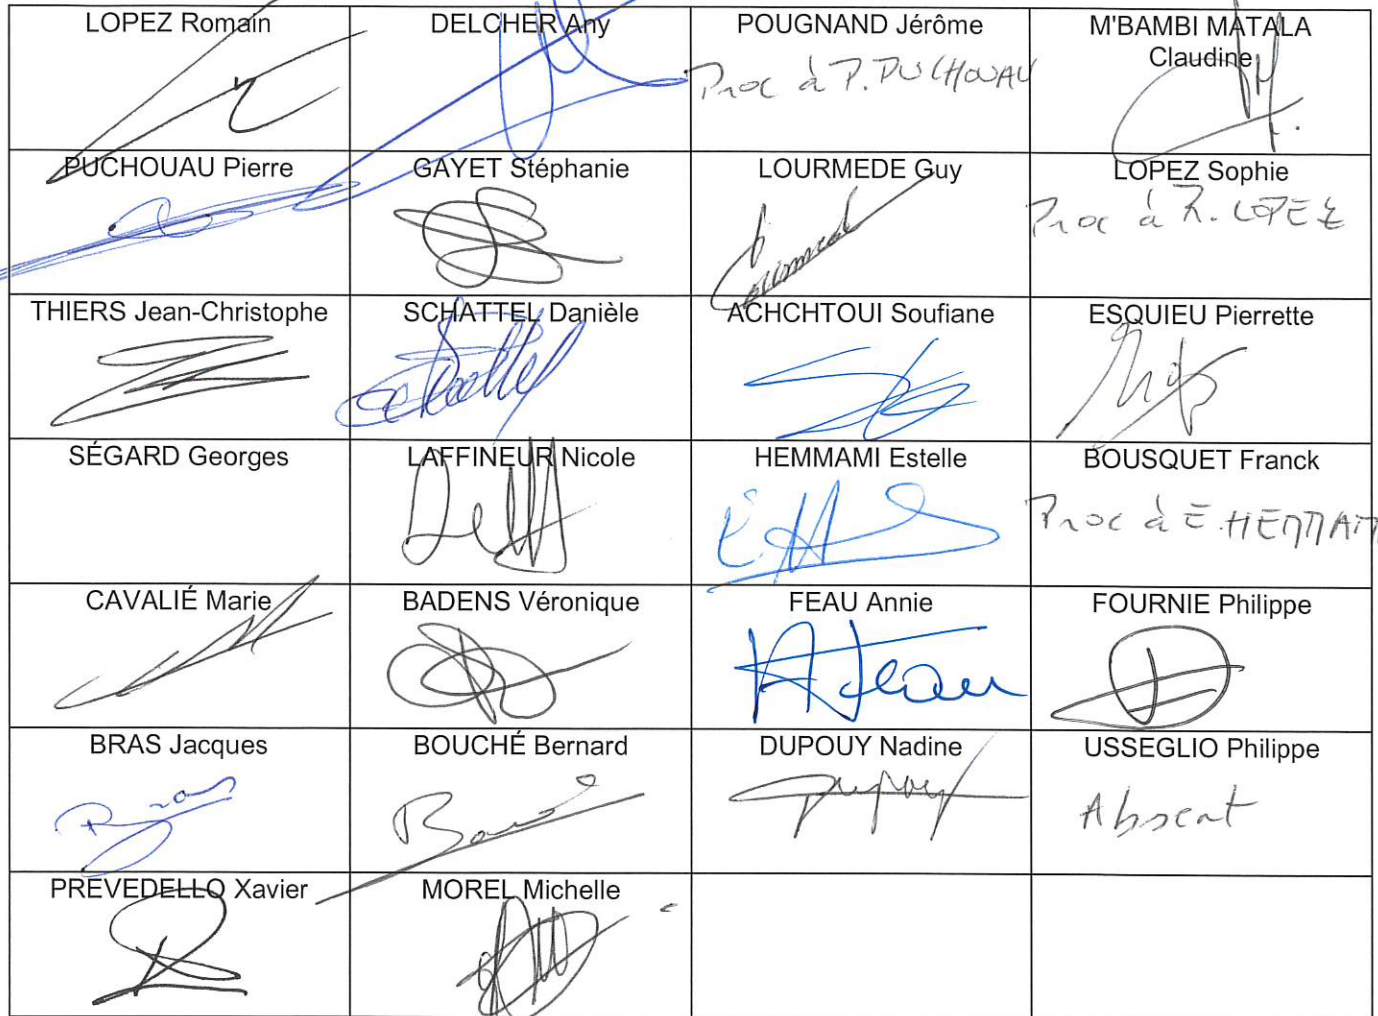 LOPEZ Romain
DELCHER Any
POUGNAND Jérôme
Proc à P. PUCHOUAU
M'BAMBI MATALA
Claudine
PUCHOUAU Pierre
GAYET Stéphanie
LOURMEDE Guy
LOPEZ Sophie
Proc à R. LOPEZ
THIERS Jean-Christophe
SCHATTEL Danièle
Schattel
ACHCHTOUI Soufiane
ESQUIEU Pierrette
SÉGARD Georges
LAFFINEUR Nicole
HEMMAMI Estelle
BOUSQUET Franck
Proc à E. HEMMAM
CAVALIÉ Marie
BADENS Véronique
FEAU Annie
A Feau
FOURNIE Philippe
BRAS Jacques
BOUCHÉ Bernard
DUPOUY Nadine
Dupouy
USSEGLIO Philippe
Absent
PREVEDELLO Xavier
MOREL Michelle